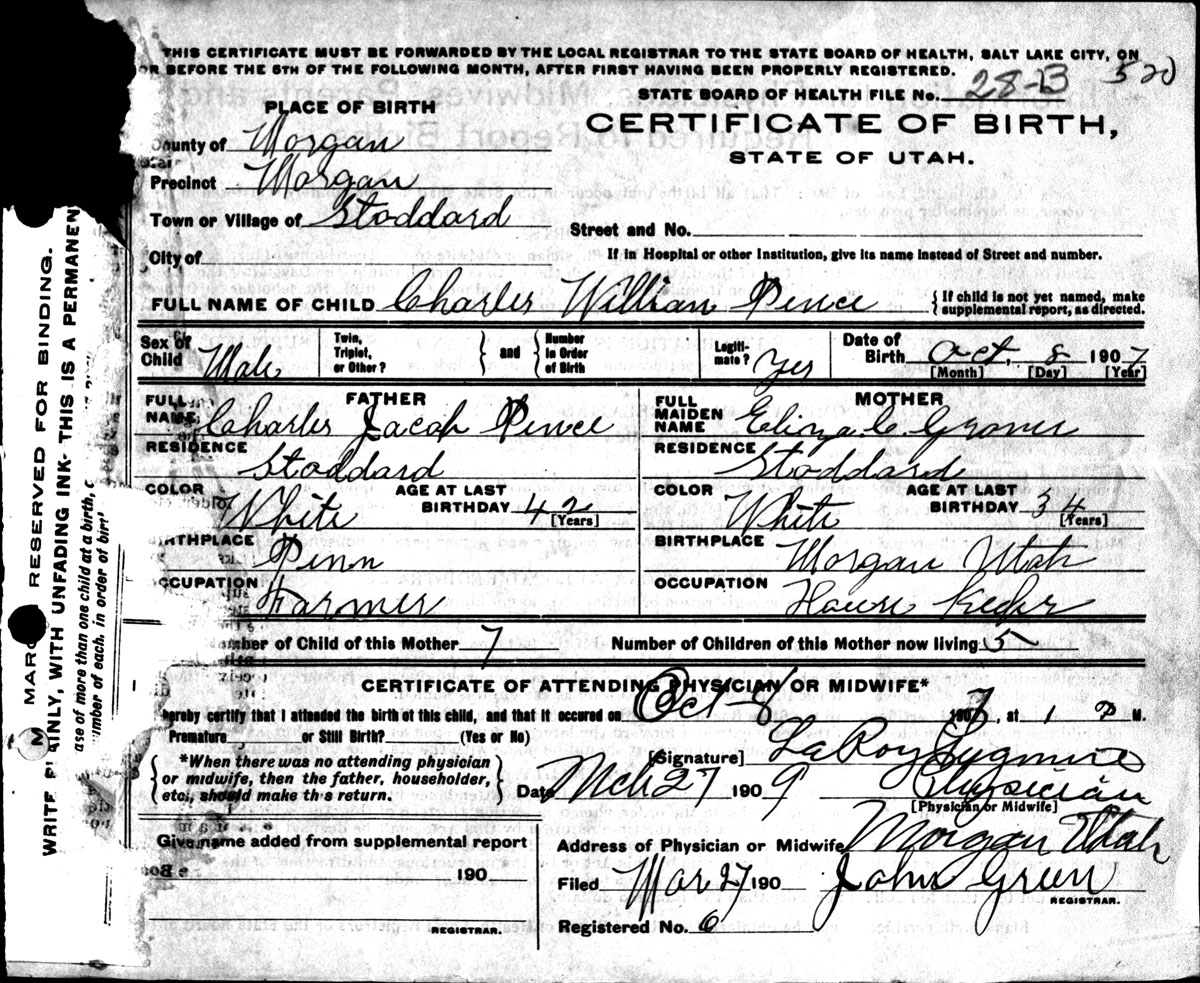 THIS CERTIFICATE MUST BE FORWARDED BY THE LOCAL REGISTRAR TO THE STATE BOARD OF HEALTH, SALT LAKE CITY, ON
OR BEFORE THE 5TH OF THE FOLLOWING MONTH, AFTER FIRST HAVING BEEN PROPERLY REGISTERED.
STATE BOARD OF HEALTH FILE No. 28-B 320
PLACE OF BIRTH
CERTIFICATE OF BIRTH,
STATE OF UTAH.
County of Morgan
Precinct Morgan
Town or Village of Stoddard
Street and No.
City of
If in Hospital or other Institution, give its name instead of Street and number.
FULL NAME OF CHILD Charles William Pence { If child is not yet named, make supplemental report, as directed.
Sex of Child Male Twin, Triplet, or Other? } and { Number in Order of Birth Legiti-mate? Yes Date of Birth Oct 8 1907
[Month] [Day] [Year]
FATHER MOTHER
FULL NAME Charles Jacob Pence FULL MAIDEN NAME Eliza C Grover
RESIDENCE Stoddard RESIDENCE Stoddard
COLOR White AGE AT LAST BIRTHDAY 42 [Years] COLOR White AGE AT LAST BIRTHDAY 34 [Years]
BIRTHPLACE Penn BIRTHPLACE Morgan Utah
OCCUPATION Farmer OCCUPATION House Keeper
mber of Child of this Mother 7 Number of Children of this Mother now living 5
CERTIFICATE OF ATTENDING PHYSICIAN OR MIDWIFE*
hereby certify that I attended the birth of this child, and that it occured on Oct 8 1907, at 1 P M.
Premature or Still Birth? (Yes or No)
[Signature] LaRoy
{ *When there was no attending physician or midwife, then the father, householder, etc., should make this return. }
Date Mch 27 1909 Physician
[Physician or Midwife]
Give name added from supplemental report
190
REGISTRAR.
Address of Physician or Midwife Morgan Utah
Filed Mar 27 190 John Green
REGISTRAR.
Registered No. 6
M MARG RESERVED FOR BINDING.
WRITE P AINLY, WITH UNFADING INK- THIS IS A PERMANEN
ase of more than one child at a birth,
umber of each, in order of birt